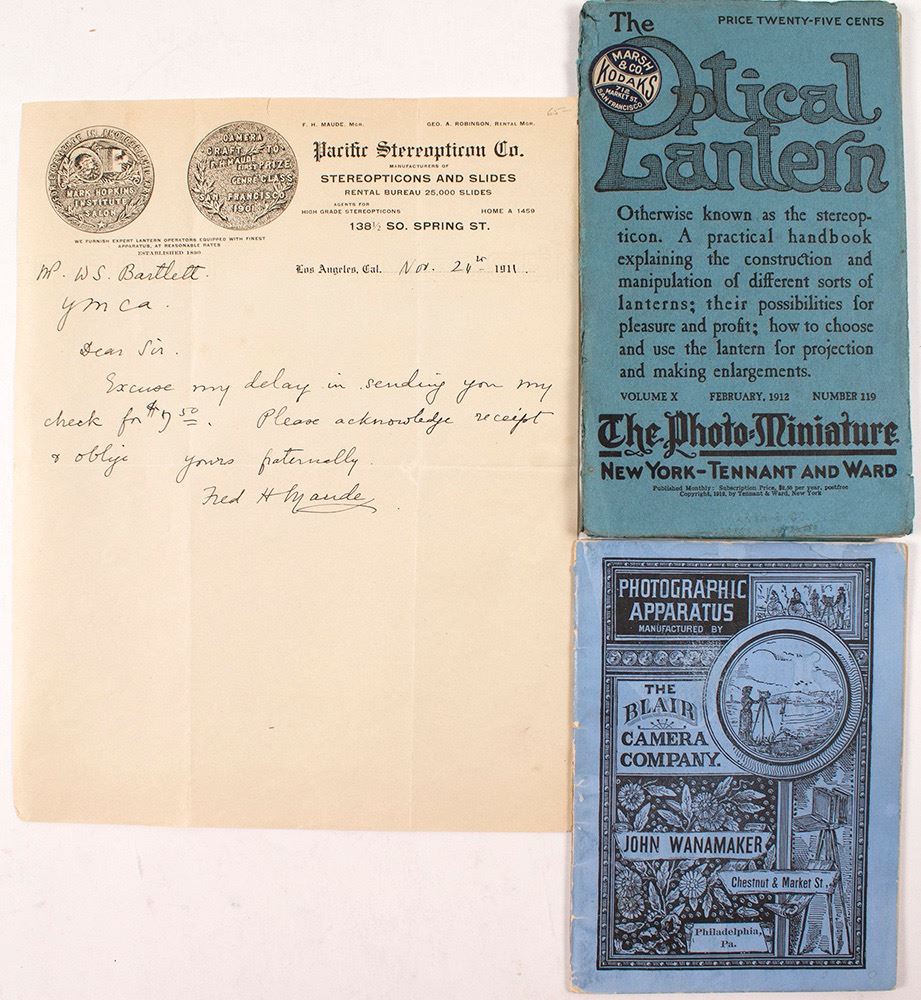 65—
F. H. MAUDE, MGR. GEO. A. ROBINSON, RENTAL MGR.
Pacific Stereopticon Co.
MANUFACTURERS OF
STEREOPTICONS AND SLIDES
RENTAL BUREAU 25,000 SLIDES
AGENTS FOR
HIGH GRADE STEREOPTICONS HOME A 1459
138½ SO. SPRING ST.
MARK HOPKINS
INSTITUTE
SALON
CAMERA
CRAFT TO
F.H. MAUDE
FIRST PRIZE
GENRE CLASS
SAN FRANCISCO
1901
WE FURNISH EXPERT LANTERN OPERATORS EQUIPPED WITH FINEST
APPARATUS, AT REASONABLE RATES
ESTABLISHED 1890
Los Angeles, Cal. Nov. 1911.
W S Bartlett.
Y M C A.
Dear Sir.
Excuse my delay in sending you my
check for $7 50. Please acknowledge receipt
& oblige yours fraternally.
Fred H Maude
The PRICE TWENTY-FIVE CENTS
MARSH
& CO.
KODAKS
712
MARKET ST.
SAN FRANCISCO
Optical
Lantern
Otherwise known as the stereop-
ticon. A practical handbook
explaining the construction and
manipulation of different sorts of
lanterns; their possibilities for
pleasure and profit; how to choose
and use the lantern for projection
and making enlargements.
VOLUME X FEBRUARY, 1912 NUMBER 119
The Photo-Miniature
NEW YORK-TENNANT AND WARD
Published Monthly: Subscription Price, $2.50 per year, postfree
Copyright, 1912, by Tennant & Ward, New York
PHOTOGRAPHIC
APPARATUS
MANUFACTURED BY
THE
BLAIR
CAMERA
COMPANY.
JOHN WANAMAKER
Chestnut & Market St.,
Philadelphia,
Pa.